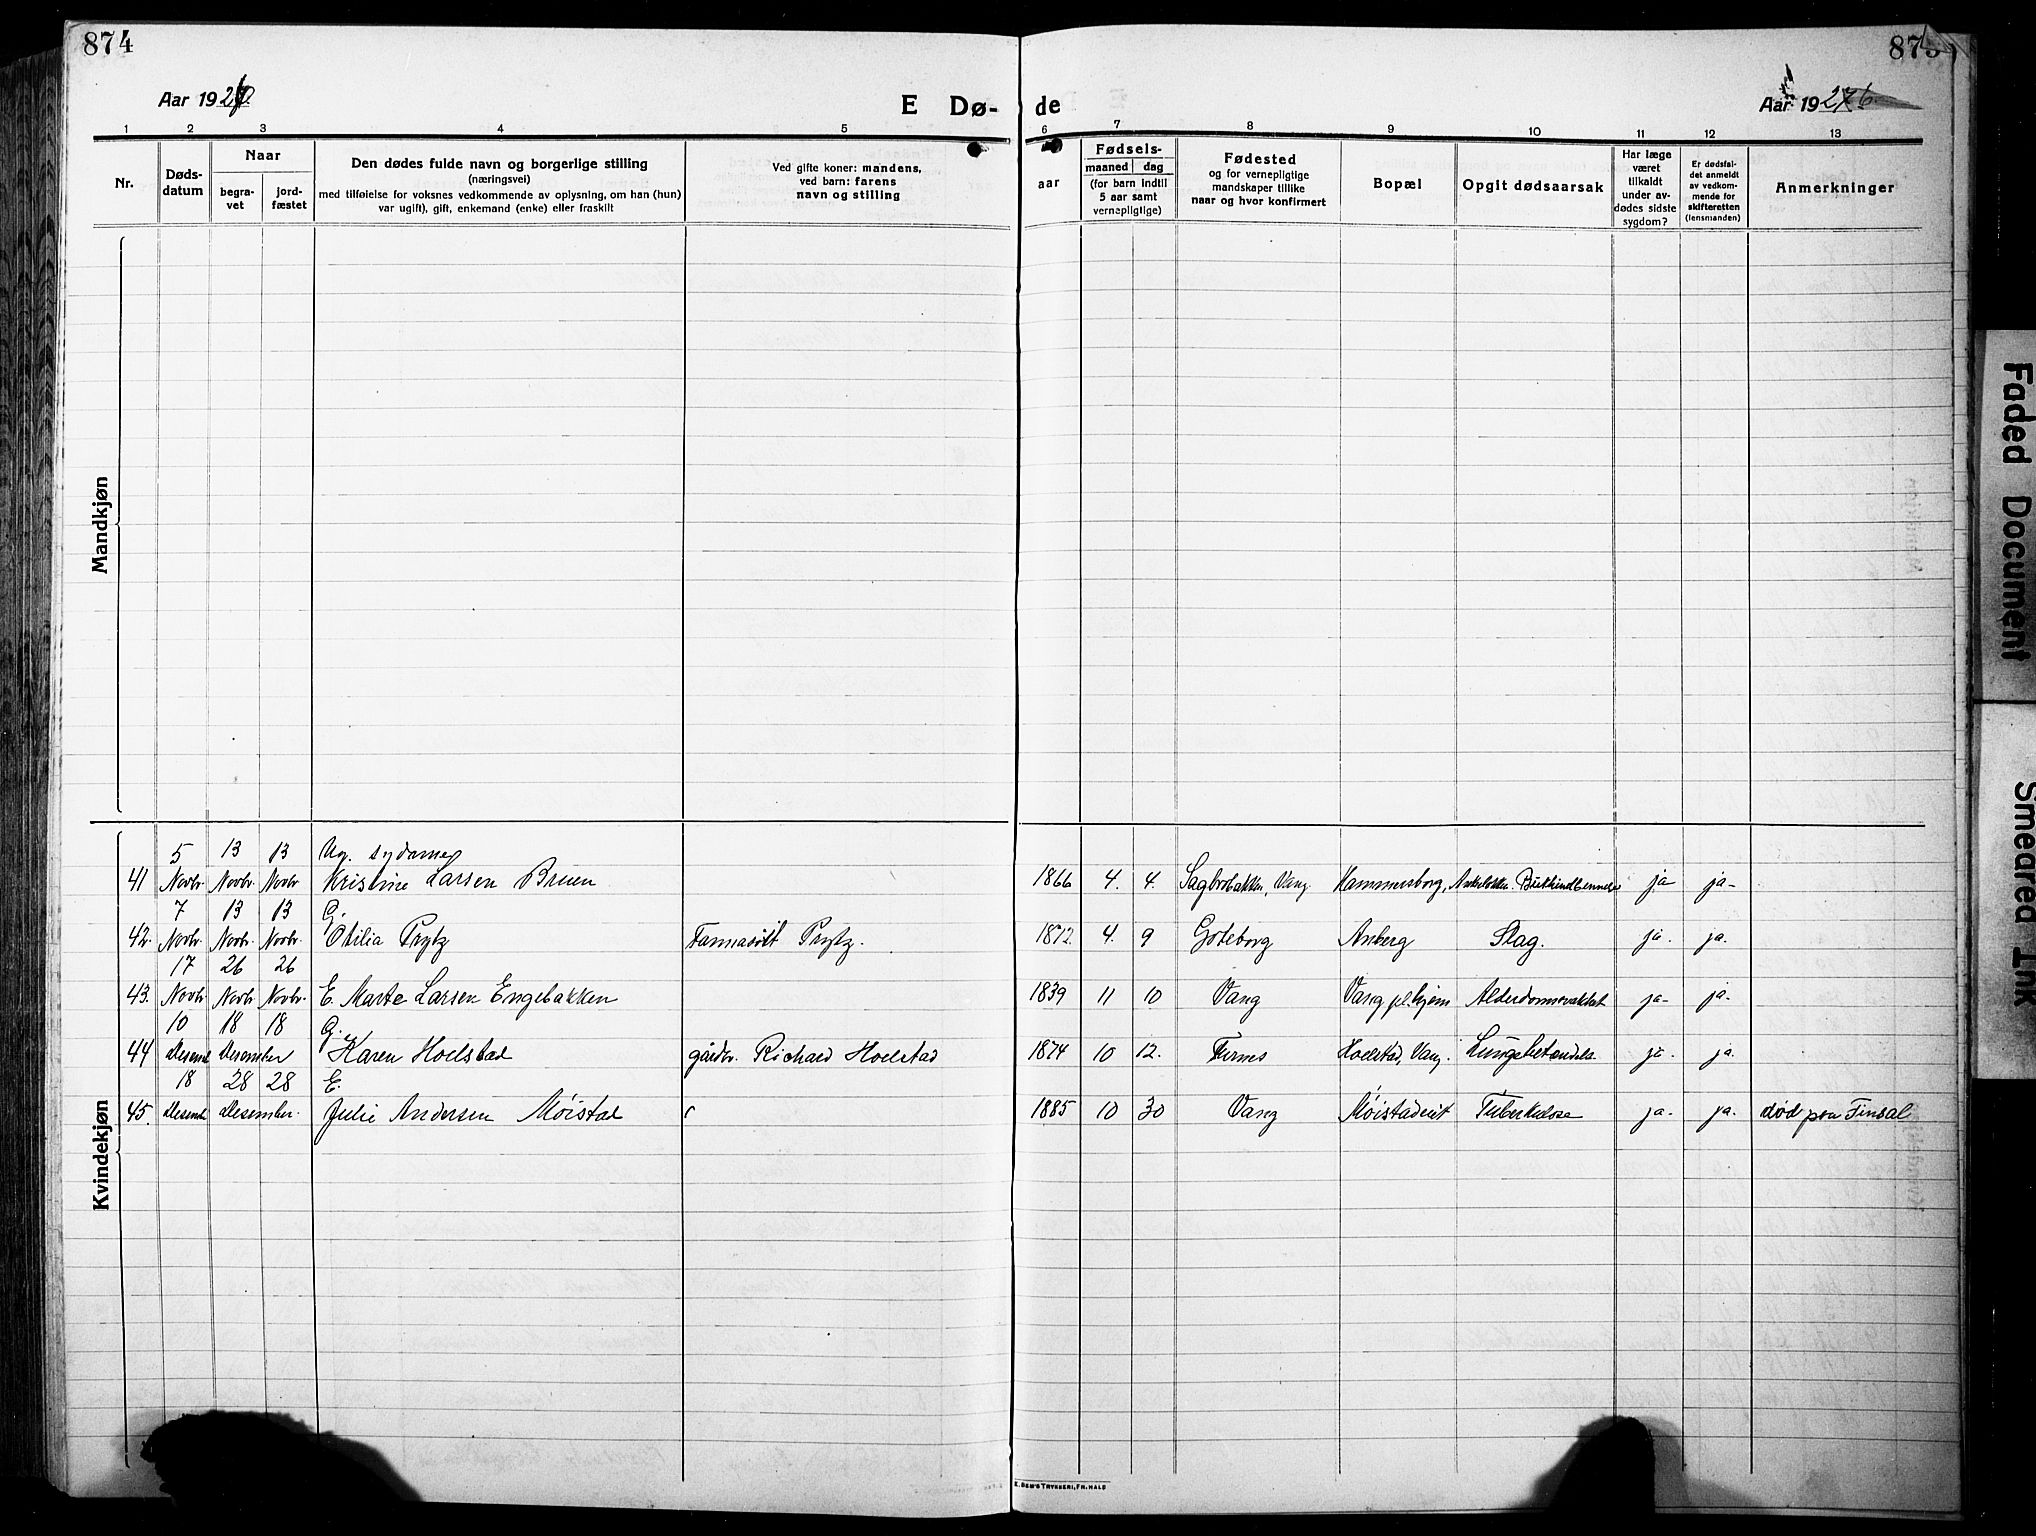 874
875
Aar 1926
E Dø-
de
Aar 1926
1 2 3 4 5 6 7 8 9 10 11 12 13
Nr.
Døds-
datum
Naar
begra-
vet
jord-
fæstet
Den dødes fulde navn og borgerlige stilling
(næringsvei)
med tilføielse for voksnes vedkommende av oplysning, om han (hun)
var ugift), gift, enkemand (enke) eller fraskilt
Ved gifte koner: mandens,
ved barn: farens
navn og stilling
aar
Fødsels-
maaned dag
(for barn indtil
5 aar samt
vernepligtige)
Fødested
og for vernepligtige
mandskaper tillike
naar og hvor konfirmert
Bopæl
Opgit dødsaarsak
Har læge
været
tilkaldt
under av-
dødes sidste
sygdom?
Er dødsfal-
det anmeldt
av vedkom-
mende for
skifteretten
(lensmanden)
Anmerkninger
Mandkjøn
Kvindekjøn
5 13 13 Ug. sydame
41 Novbr. Novbr. Novbr Kristine Larsen Bruen 1866 4. 4. Sagbrobakken, Vang. Hammersborg, ja ja-
7 13 13 G.
42. Novbr. Novbr. Novbr. Otilia Prytz Prytz. 1872. 4. 9 Gøteborg Anberg Slag. ja. ja.
17 26 26
43. Novbr. Novbr. Novbr. E. Marte Larsen Engebakken 1839 11 10 Vang Vang pl.hjem ja- ja.
10 18 18 G.
44 Desemb Desember Karen Hoelstad gårdbr. Richard Hoelstad 1874 10 12. Furnes Hoelstad, Vang. Lungebetændelse ja. ja.
18 28 28 E.
45. Desemb Desember. Julie Andersen Møistad 1885 10 30 Vang Møistadeiet Tuberkulose ja- ja. død paa Finsal
E. SEM'S TRYKKERI, FR.HALD
Faded Document
Smeared Ink